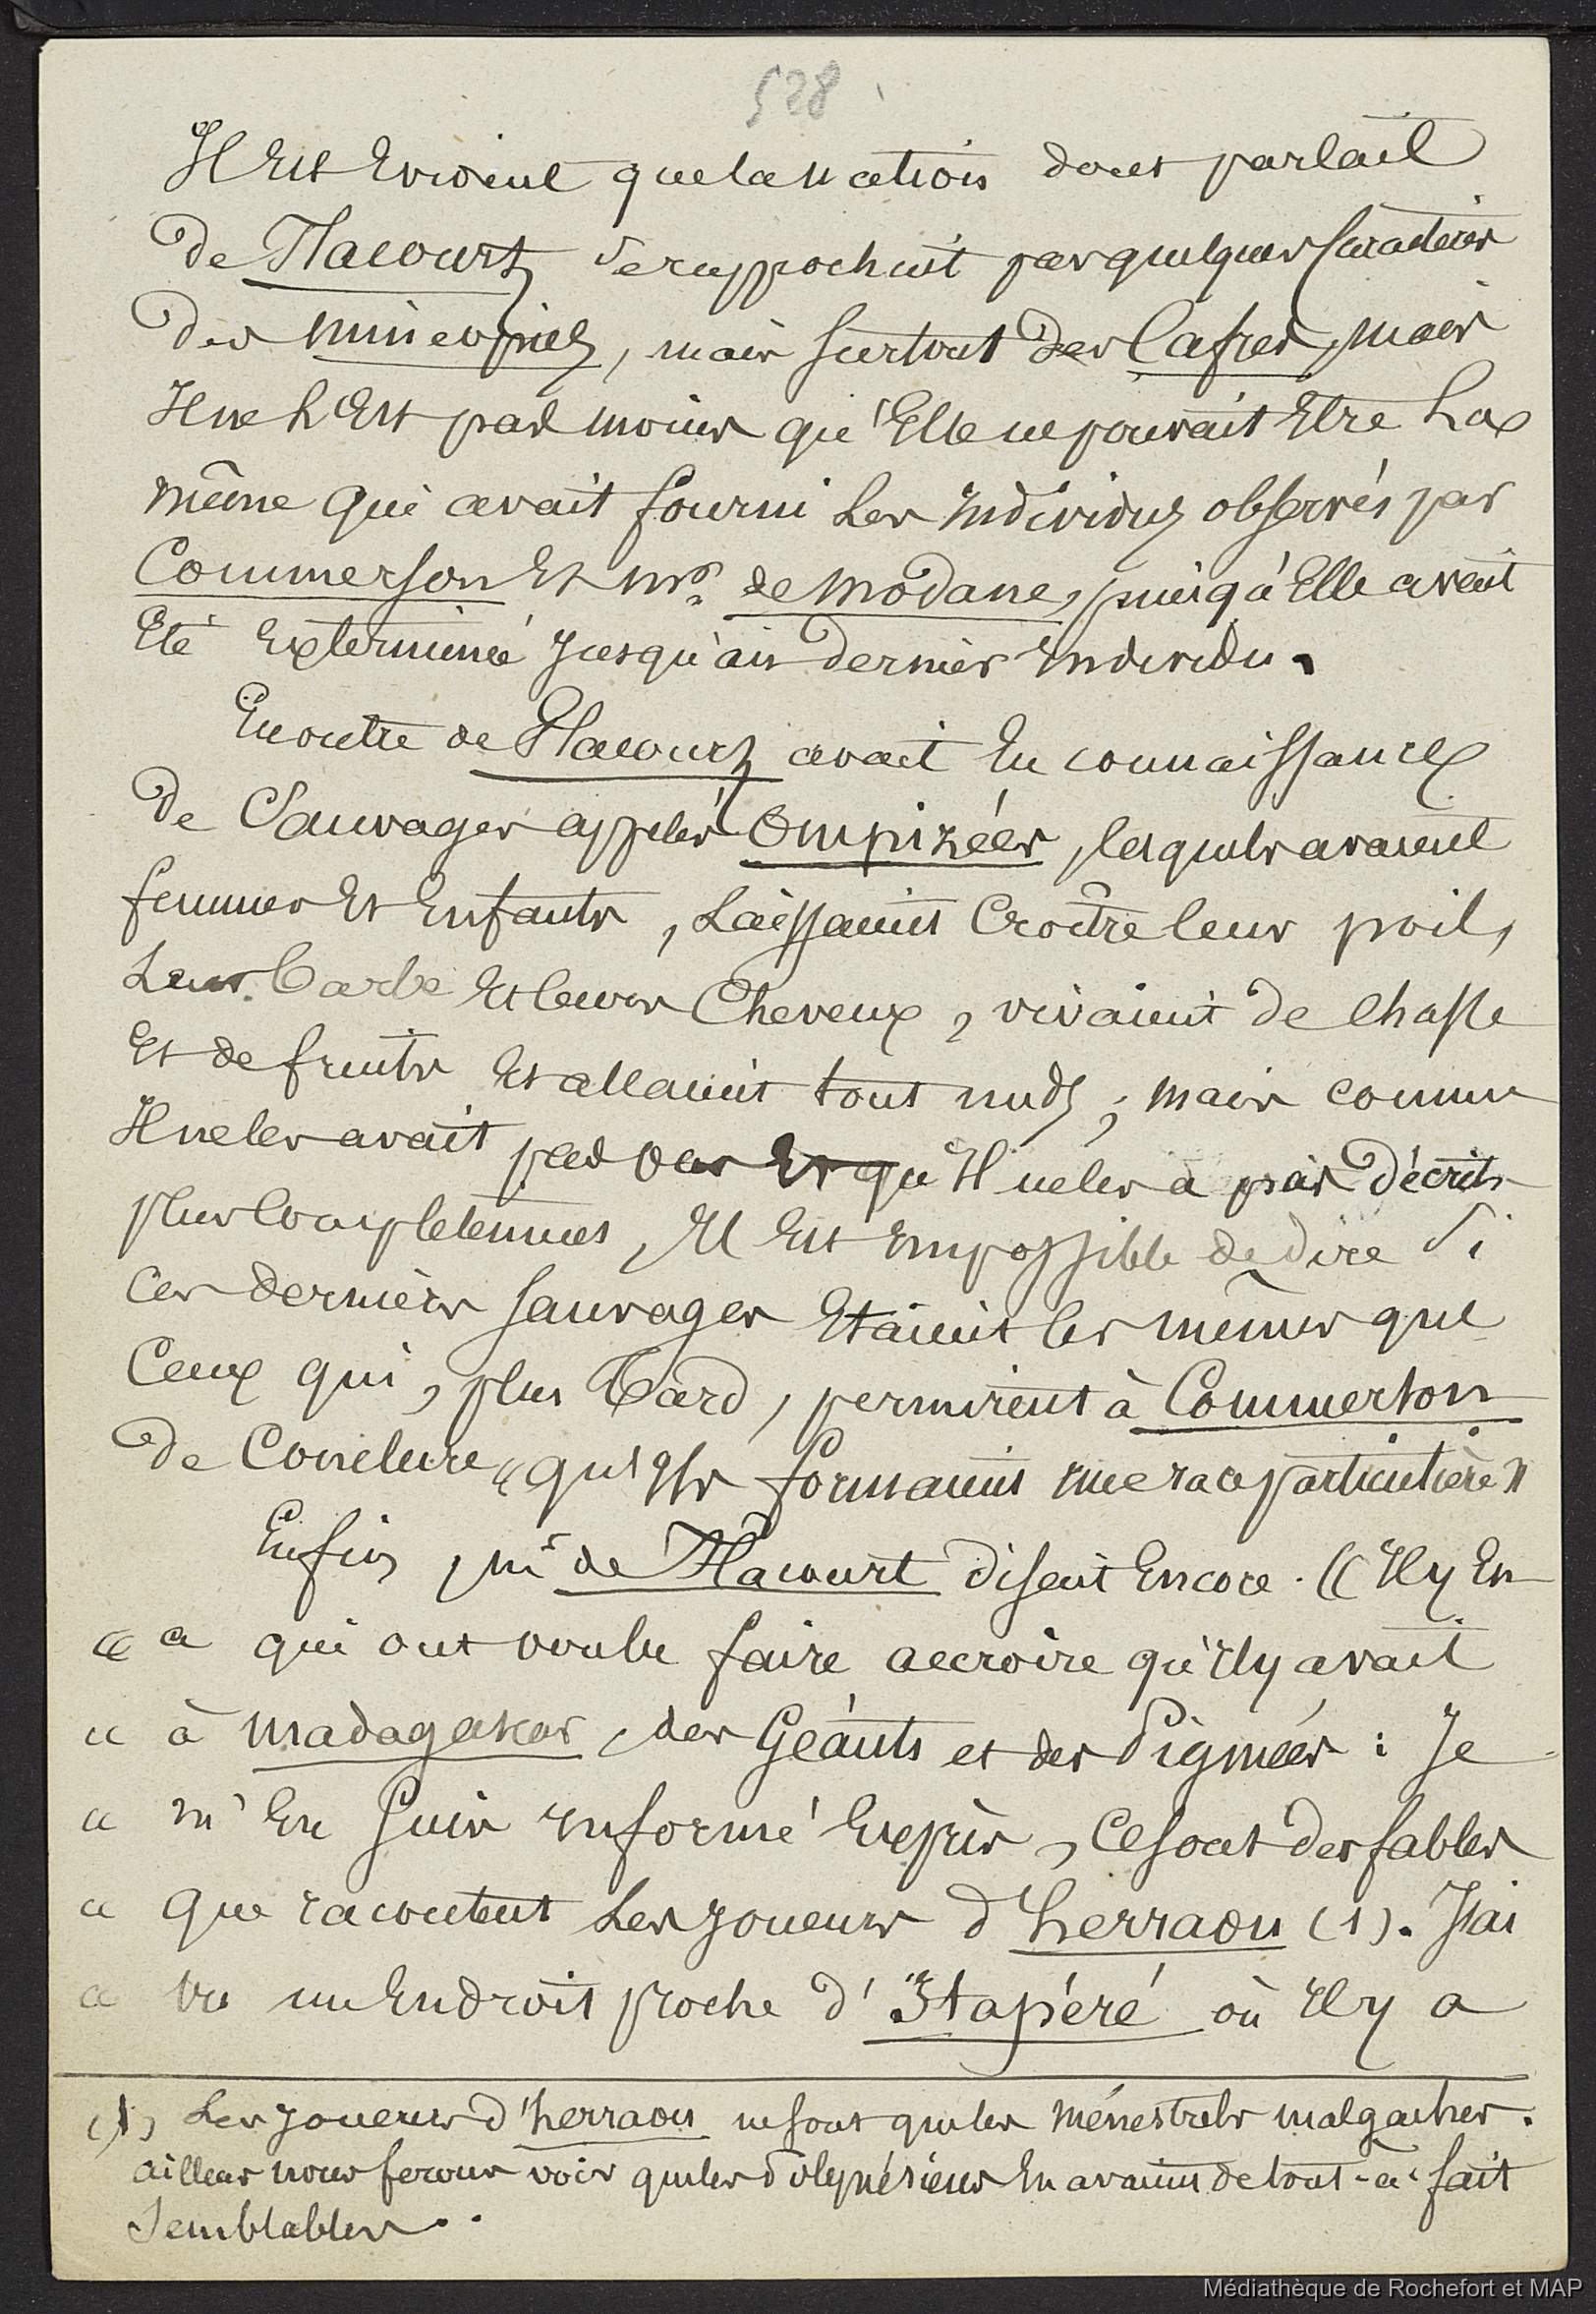 528
Il Est Evident que la nation dont parlait
de Flacourt, se rapprochait par quelques Caractères
des mincopies, mais surtout des Cafres, mais
Il ne n'Est pas moins qu'Elle ne pouvait Etre La
même qui avait fourni Les Individus observés par
Commerson Et Mr. de Modane, puisqu'Elle avait
Eté Exterminée Jusqu'au dernier Individu.
En outre de Flacourt avait Eu connaissance
de Sauvages appelés Ompizées, lesquels avaient
femmes Et Enfants, Laissaient Croître leur poil,
Leur barbe Et leurs Cheveux, vivaient de Chasse
Et de fruits Et allaient tout nuds; mais comme
Il ne les avait pas vus Et qu'Il ne les a pas décrits
plus Completement, Il Est Impossible de dire Si
Ces derniers Sauvages Etaient les mêmes que
Ceux qui, plus Tard, permirent à Commerson
de Conclure « qu'Ils formaient une race particulière »
Enfin, Mr de Flacourt disait Encore. « Il y En
« a qui ont voulu faire accroire qu'Il y avait
« à Madagakar, des Géants et des Pigmées : Je
« m'En Suis Informé Exprès, Ce sont des fables
« Que racontent Les Joueurs d'herraou (1). J'ai
« vu un Endroit proche d'Itapéré où Il y a
(1) Les Joueurs d'herraou ne sont que les ménestrels malgaches.
ailleurs nous ferons voir que les Polynésiens En avaient de tout-à-fait
Semblables.
Médiathèque de Rochefort et MAP